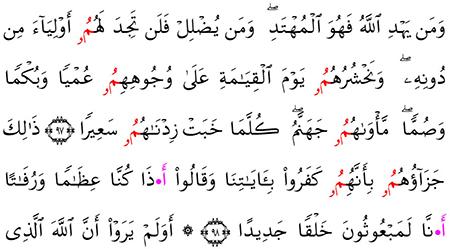 وَمَن يَهْدِ ٱللَّهُ فَهُوَ ٱلْمُهْتَدِۦ وَمَن يُضْلِلْ فَلَن تَجِدَ لَهُمُۥ أَوْلِيَآءَ مِن
دُونِهِۦ وَنَحْشُرُهُمُۥ يَوْمَ ٱلْقِيَٰمَةِ عَلَىٰ وُجُوهِهِمُۥ عُمْيًا وَبُكْمًا
وَصُمًّا مَّأْوَىٰهُمُۥ جَهَنَّمُ كُلَّمَا خَبَتْ زِدْنَٰهُمُۥ سَعِيرًا ٩٧ ذَٰلِكَ
جَزَآؤُهُمُۥ بِأَنَّهُمُۥ كَفَرُوا۟ بِـَٔايَٰتِنَا وَقَالُوٓا۟ أَ•ذَا كُنَّا عِظَٰمًا وَرُفَٰتًا
أَ•نَّا لَمَبْعُوثُونَ خَلْقًا جَدِيدًا ٩٨ ۞ أَوَلَمْ يَرَوْا۟ أَنَّ ٱللَّهَ ٱلَّذِى